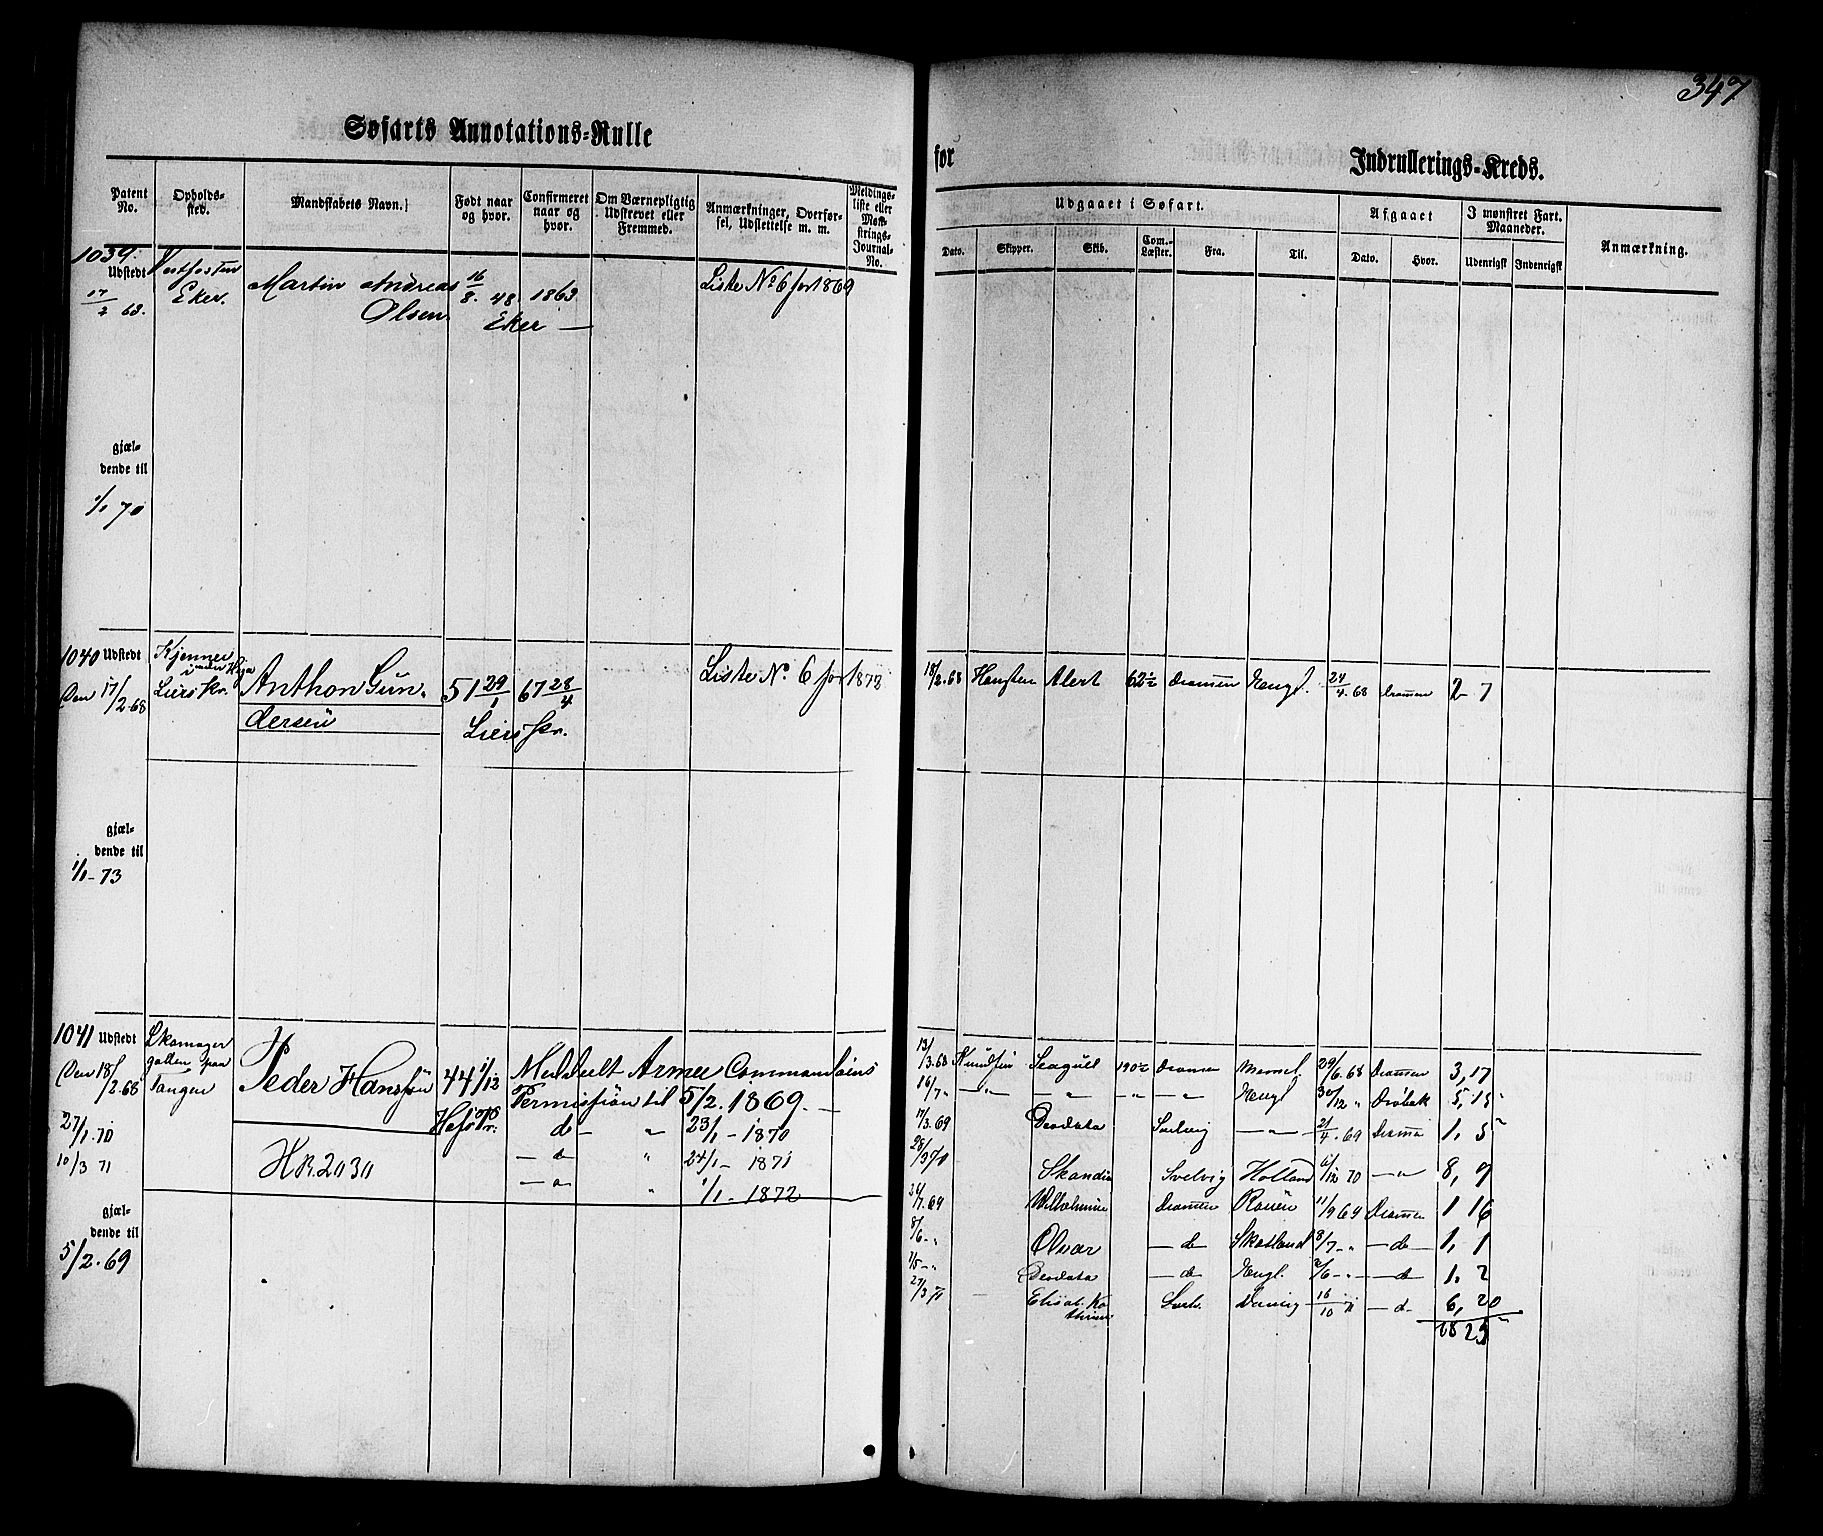 347
Søfarts Annotations-Rulle
for
Indrullerings-Kreds.
Patent No.
Opholds-sted.
Mandskabets Navn.
Født naar og hvor.
Confirmeret naar og hvor.
Om Værnepligtig Udskrevet eller Fremmed.
Anmærkninger, Overførsel, Udslettelse m. m.
Meldings-liste eller Mønstrings-Journal-No.
Udgaaet i Søfart.
Afgaaet
I mønstret Fart. Maaneder.
Anmærkning.
Dato.
Skipper.
Skib.
Com.-Læster.
Fra.
Til.
Dato.
Hvor.
Udenrigsk
Indenrigsk
1039.
Udstedt
17/2 68.
Vestfossen
Eker.
Martin Andreas
Olsen
16/8. 48
Eker —
1863
Liste No 6 for 1869
Gjæl-
dende til
1/1 70
1040 Udstedt
Den 17/2.68
Kjenner
Liers Pr.
Anthon Gun.
dersen
51 29/1
67 28/4
Liers Pr.
Liste No. 6 for 1873
18/2.68
Alert
62½
Dramen
Engl.
24/4.68
Dramen
2-7
Gjæl-
dende til
1/1-73
1041 Udstedt
Den 18/2.68
27/1.70
10/3 71
Skomager
gatten paa
Tangen
Peder Hanssen
44 1/12
HR.2030
Meddelt Armee Commandoins
Permission til 5/2.1869.
d — " 23/1-1870
— d — " 24/1-1871
— " — " 1/1-1872
Gjæl-
dende til
5/2.69
13/3.68 Knudsen Seagull 190½ Dramen 29/6.68 Dramen 3,17
16/7 " — " — — " — — " — Engl 30/12 " Drøbak 5,15
17/3.69 Deodata Svelvig — " — 21/4.69 Dramen 1,5
28/3 70 Skandia Svelvig Holland 6/12 70 — " — 8,9
7.69 Wilhelmine Dramen Rouen 11/9 69 Dramen 1 16
8/6 - " — d — Skotland 8/7 - " — d — 1,1
Deodata — d — Engl. — d — 1.2
27/3 71 Elisab. Ka
thrine Svelv. 16/10 71 — d — 6,20
28 25